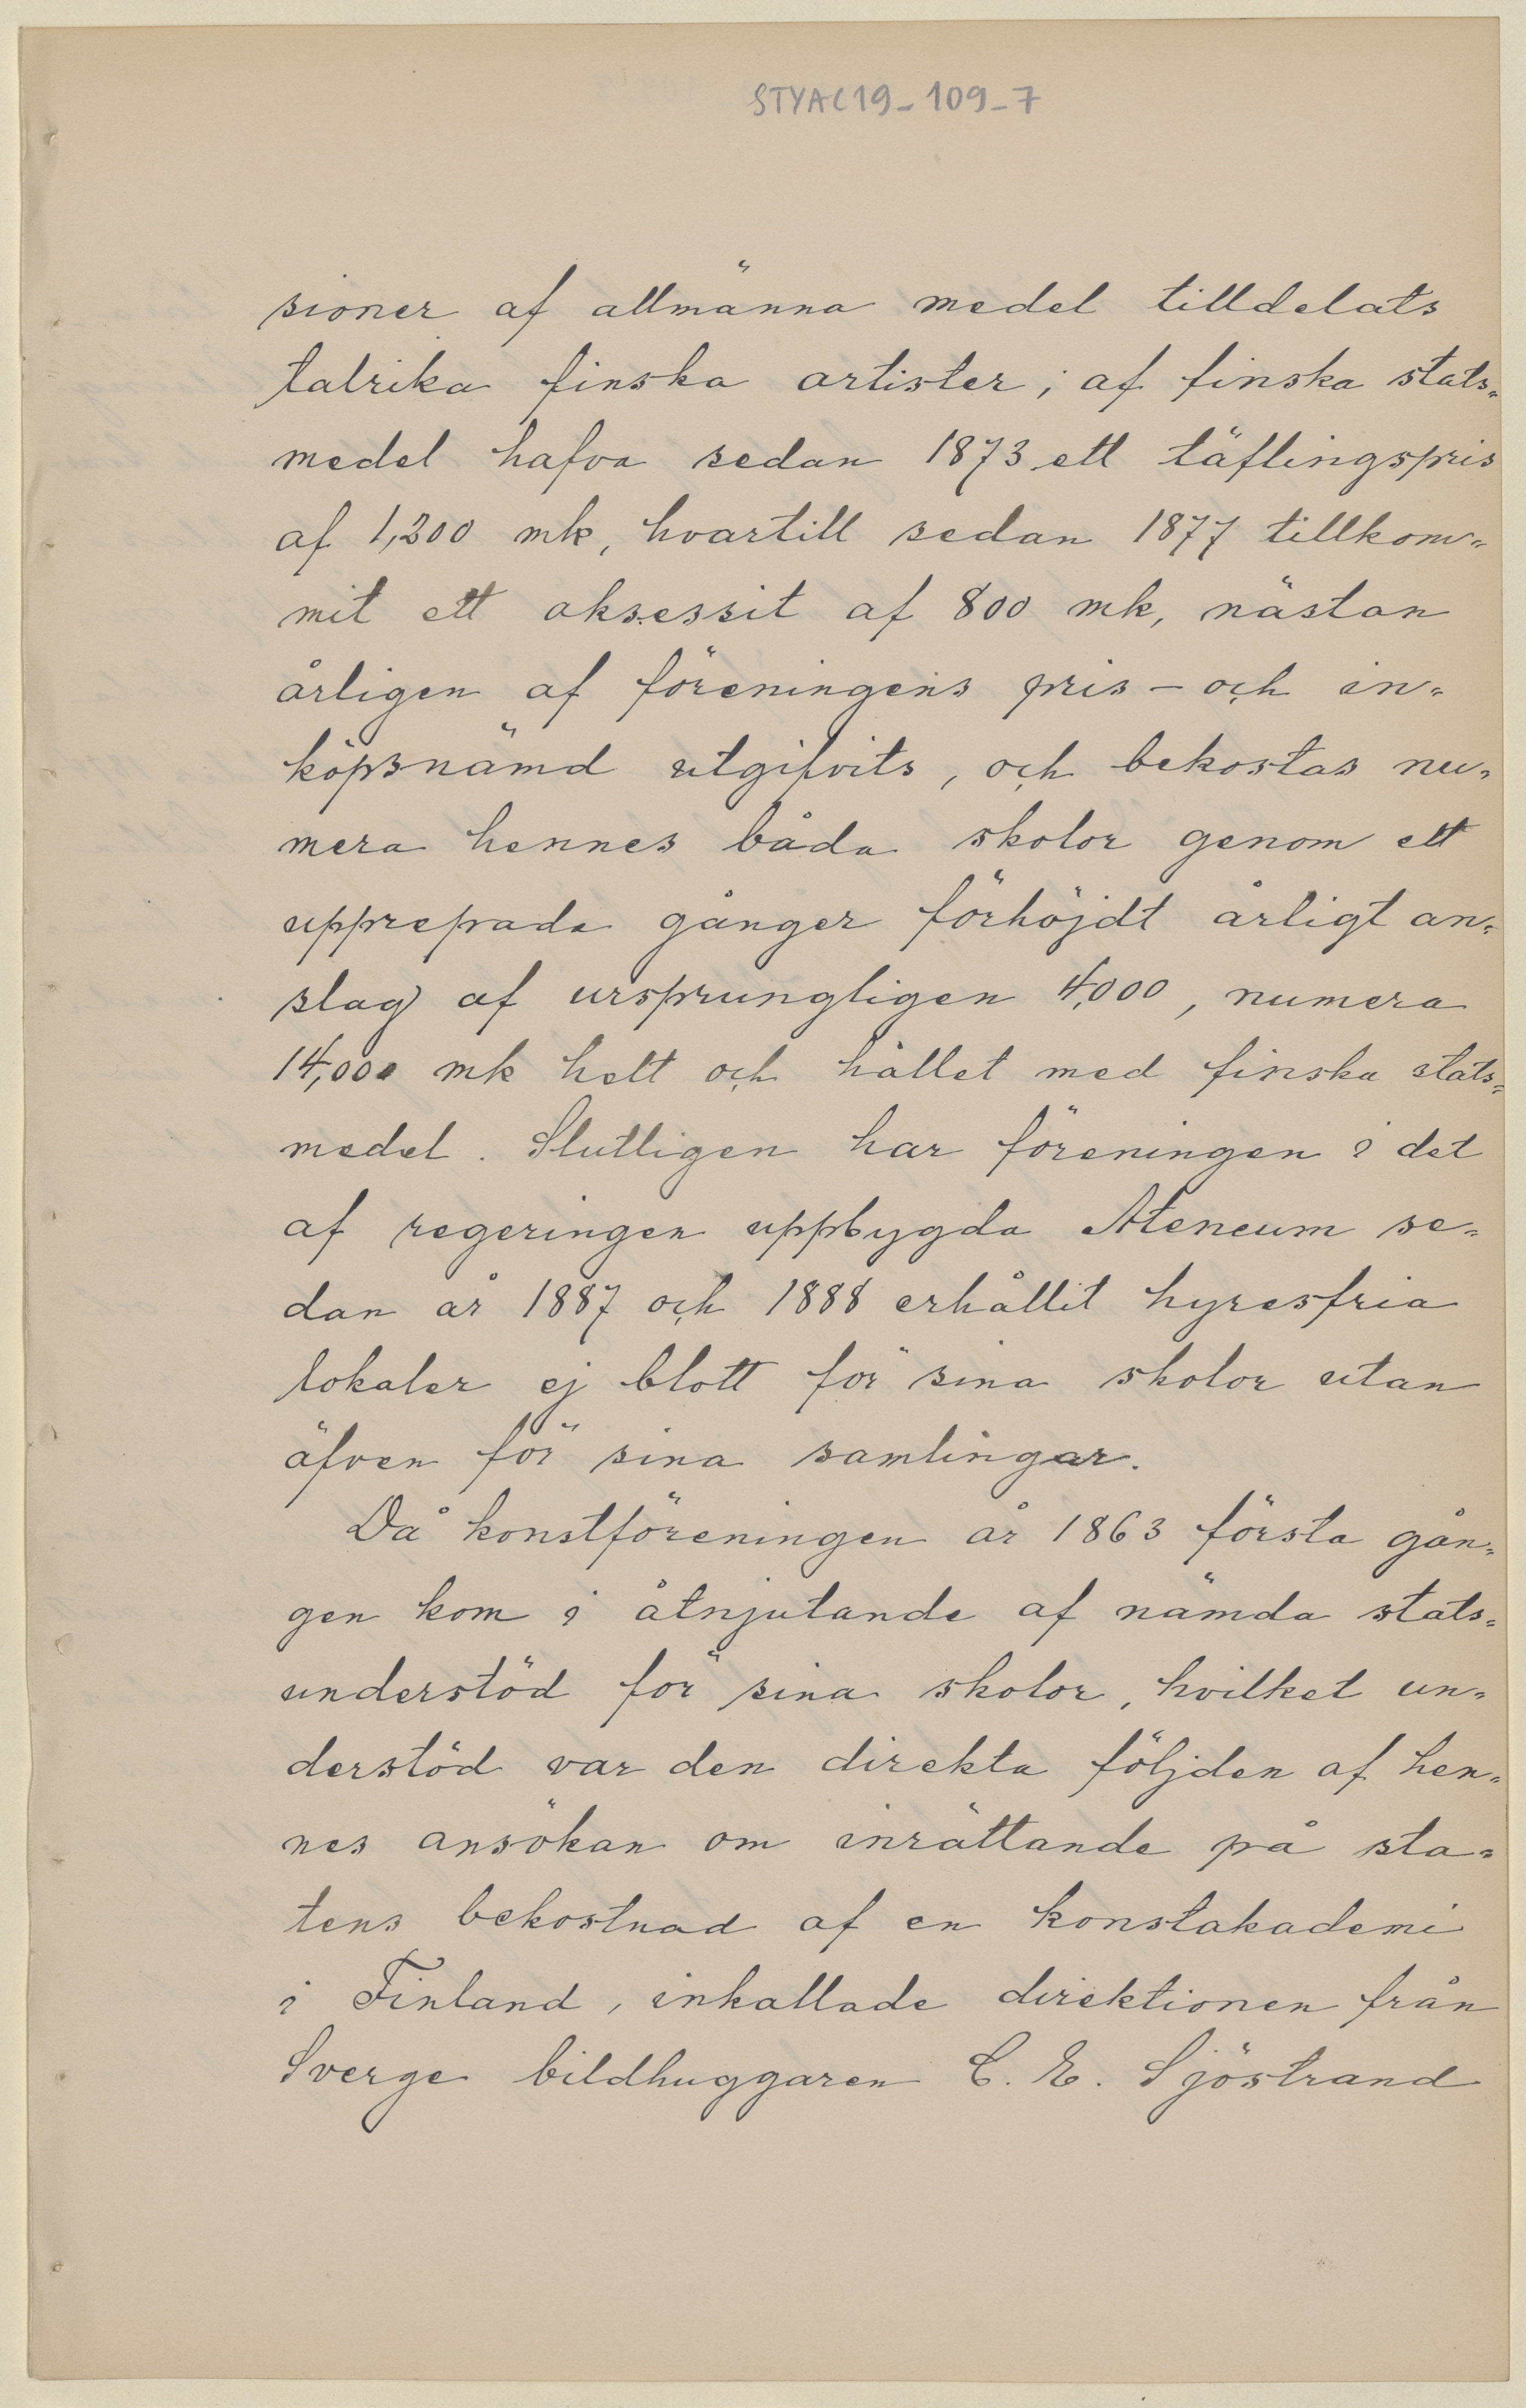 STYAC19-109-7
sioner af allmänna medel tilldelats
talrika finska artister; af finska stats=
medel hafva sedan 1873 ett täflingspris
af 1,200 mk, hvartill sedan 1877 tillkom=
mit ett aksessit af 800 mk, nästan
årligen af föreningens pris- och in=
köpsnämd utgifvits, och bekostas nu=
mera hennes båda skolor genom ett
upprepade gånger förhöjdt årligt an=
slag af ursprungligen 4,000, numera
14,000 mk helt och hållet med finska stats=
medel. Slutligen har föreningen i det
af regeringen uppbygda Ateneum se=
dan år 1887 och 1888 erhållit hyresfria
lokaler ej blott för sina skolor utan
äfven för sina samlingar.
Då konstföreningen år 1863 första gån=
gen kom i åtnjutande af nämda stats=
understöd för sina skolor, hvilket un=
derstöd var den direkta följden af hen=
nes ansökan om inrättande på sta=
tens bekostnad af en konstakademi
i Finland, inkallade direktionen från
Sverge bildhuggaren C. E. Sjöstrand